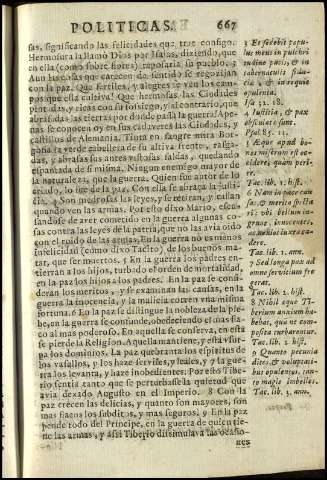 POLITICAS. 667
sas, significando las felicidades que trae consigo.
Hermosura la llamó Dios por Isaias, diziendo, que
en ella (como sobre flores) reposaria su pueblo. 3
Aun las cosas que carecen de sentido se regozijan
con la paz. Que fertiles, y alegres se ven los cam-
pos que ella cultiva! Que hermosas las Ciudades
pintadas, y ricas con su sosiego, y al contrario, que
abrasadas las tierras por donde passa la guerra! Ape-
nas se conocen oy en sus cadaveres las Ciudades, y
castillos de Alemania. Tinta en sangre mira Bor-
goña la verde cabellera de su altiva frente, rasga-
das, y abrasadas sus antes vistosas faldas, quedando
espantada de si misma. Ningun enemigo mayor de
la naturaleza, que la guerra. Quien fue autor de lo
criado, lo fue de la paz. Con ella se abraça la justi-
cia. 4 Son medrosas las leyes, y se retiran, y callan
quando ven las armas. Por esto dixo Mario, escu-
sandose de aver cometido en la guerra algunas co-
sas contra las leyes de la patria, que no las avia oido
con el roido de las armas. En la guerra no es menos
infelicidad (como dixo Tacito) de los buenos ma-
tar, que ser muertos. 5 En la guerra los padres en-
tierran a los hijos, turbado el orden de mortalidad,
en la paz los hijos a los padres. En la paz se consi-
deran los meritos, y se examinan las causas, en la
guerra la inocencia, y la malicia corren vna misma
fortuna. 6 En la paz se distingue la nobleza de la ple-
be, en la guerra se confunde, obedeciendo el mas fla-
co al mas poderoso. En aquella se conserva, en esta
se pierde la Religion. Aquella mantiene, y esta vsur-
pa los dominios. La paz quebranta los espiritus de
los vasallos, y los haze serviles, y leales, y la gue-
rra los levanta, y haze inobedientes. Por esto Tibe-
rio sentia tanto que se perturbasse la quietud que
avia dexado Augusto en el Imperio. 8 Con la paz
crecen las delicias, y quanto son mayores, son
mas flacos los subditos, y mas seguros. 9 En la paz
pende todo del Principe, en la guerra de quien tie-
ne las armas, y assi Tiberio dissimulava las ocasio-
nes
3 Et sedebit popu-
lus meus in pulchri
tudine pacis, & in
tabernaculis fidu-
tiæ, & in requie
opulenta.
Isa. 32. 18.
4 Iustitia, & pax
osculatæ sunt.
Psal. 85. 11.
5 Æque apud bo-
nos miserum est oc-
cidere, quam peri-
re.
Tac. lib. 1. hist.
6 Nam in pace cau-
sas, & merita specta
ri: vbi bellum in-
gruat, innocentes,
ac noxios iuxta ca-
dere.
Tac. lib. 1. ann.
7 Sed longa pax ad
omne servitium fre
gerat.
Tac. lib. 2. hist.
8 Nihil æque Ti-
berium anxium ha-
bebat, quam ne com
posita turbarentur.
Tac. lib. 2. ann.
9 Quanto pecunia
dites, & voluptati-
bus opulentos, tan-
to magis imbelles.
Tac. lib. 3. ann.